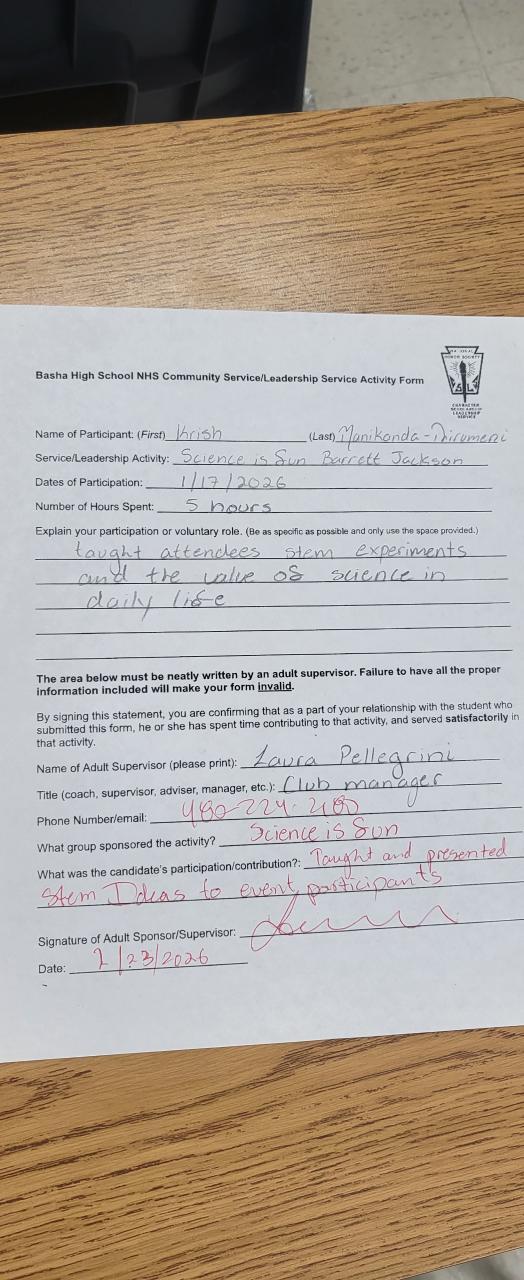 NATIONAL HONOR SOCIETY
CHARACTER
SCHOLARSHIP
LEADERSHIP
SERVICE
Basha High School NHS Community Service/Leadership Service Activity Form
Name of Participant: (First) Krish (Last) Manikonda-Tirumeni
Service/Leadership Activity: Science is Sun Barrett Jackson
Dates of Participation: 1/17/2026
Number of Hours Spent: 5 hours
Explain your participation or voluntary role. (Be as specific as possible and only use the space provided.)
taught attendees stem experiments
and the value of science in
daily life
The area below must be neatly written by an adult supervisor. Failure to have all the proper
information included will make your form invalid.
By signing this statement, you are confirming that as a part of your relationship with the student who
submitted this form, he or she has spent time contributing to that activity, and served satisfactorily in
that activity.
Name of Adult Supervisor (please print): Laura Pellegrini
Title (coach, supervisor, adviser, manager, etc.): Club manager
Phone Number/email: 480-224-
What group sponsored the activity? Science is Sun
What was the candidate's participation/contribution?: Taught and presented
Stem Ideas to event participants
Signature of Adult Sponsor/Supervisor:
Date: /23/2026